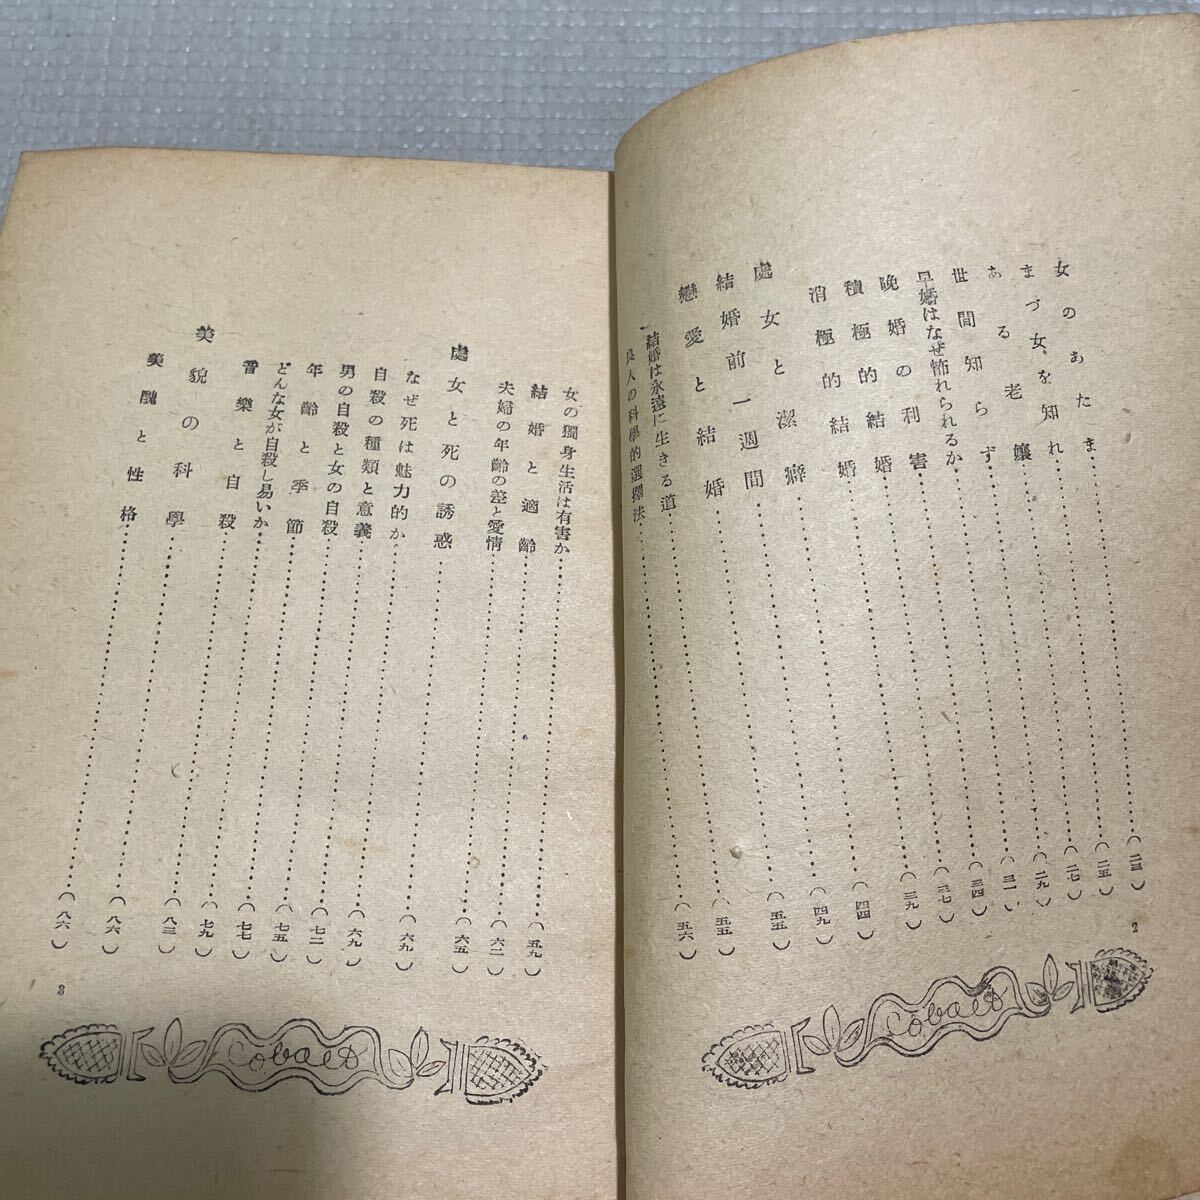 女のあたま……(二三)
まづ女を知れ……(二五)
ある老孃……(二七)
世間知らず……(二九)
早婚はなぜ怖れられるか……(三一)
晩婚の利害……(三四)
積極的結婚……(三七)
消極的結婚……(三九)
處女と潔癖……(四四)
結婚前一週間……(四九)
戀愛と結婚……(五五)
結婚は永遠に生きる道……(五五)
良人の科學的選擇法……(五六)
2
Cobalt
女の獨身生活は有害か……(五九)
結婚と適齡……(六二)
夫婦の年齡の差と愛情……(六五)
處女と死の誘惑……(六九)
なぜ死は魅力的か……(六九)
自殺の種類と意義……(七二)
男の自殺と女の自殺……(七五)
年齡と季節……(七七)
どんな女が自殺し易いか……(七九)
音樂と自殺……(八三)
美貌の科學……(八六)
美醜と性格……(八六)
3
Cobalt